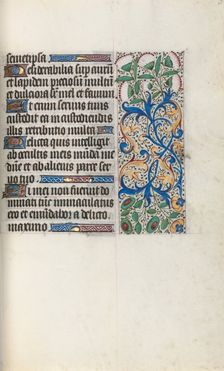 semetipsa
Desiderabilia sup aurū
et lapidem preciosū multū
et dulciora sr̄ mel et fauum
Et enim seruus tuus
custodit ea in custodiendis
illis retributio multa
Delicta quis intelligit
ab ocultis meis mūda me
dn̄e et ab alienis parce ser
uo tuo
Si mei non fuerint do
minati tūc immaculatus
ero et emūdabor a delicto
maximo